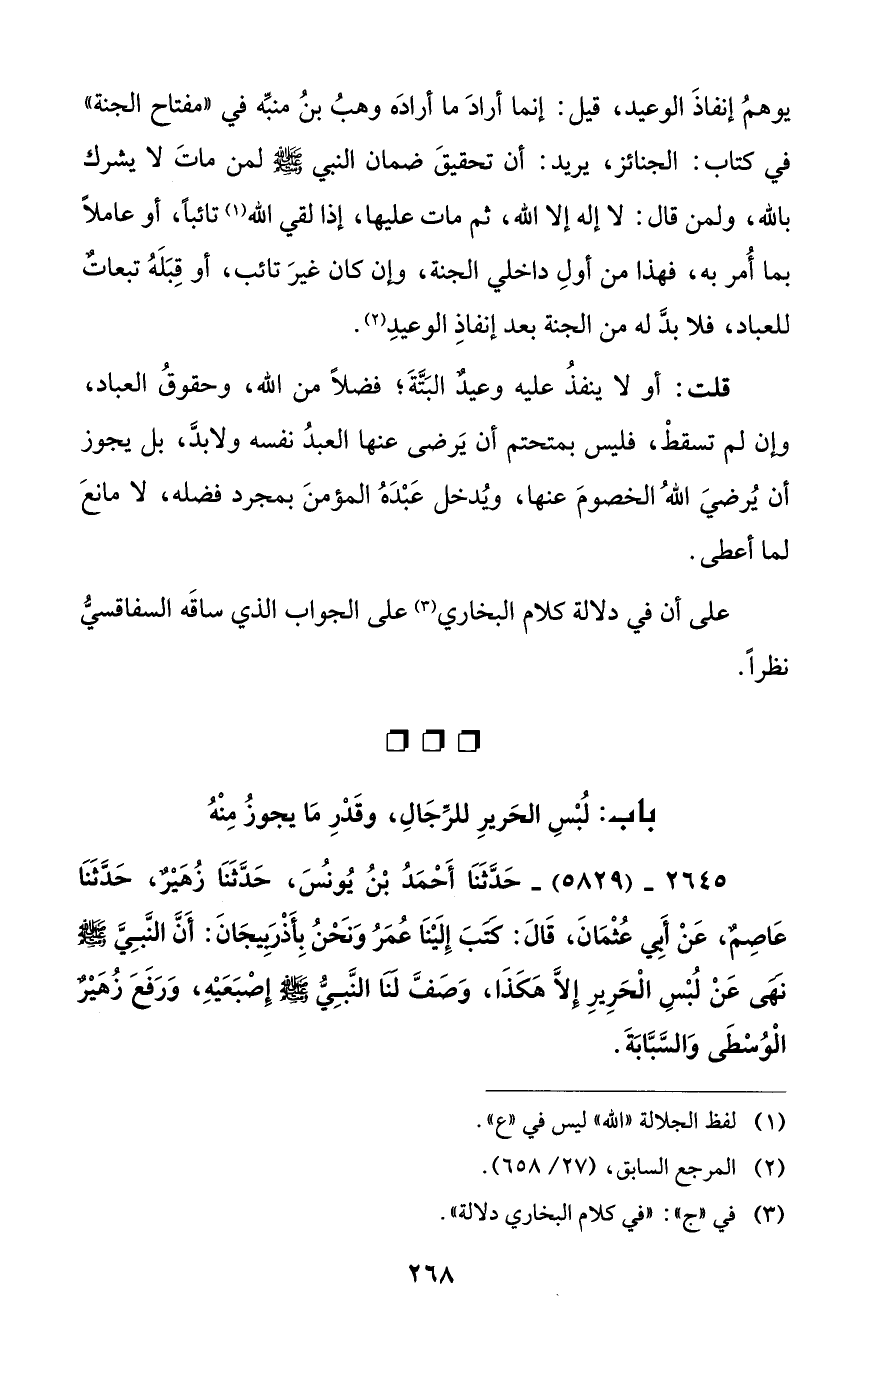 يوهمُ إنفاذَ الوعيد، قيل: إنما أرادَ ما أرادَه وهبُ بنُ منبِّه في «مفتاح الجنة»
في كتاب: الجنائز، يريد: أن تحقيقَ ضمان النبي ﷺ لمن ماتَ لا يشرك
بالله، ولمن قال: لا إله إلا الله، ثم مات عليها، إذا لقي الله(١) تائباً، أو عاملاً
بما أُمر به، فهذا من أولِ داخلي الجنة، وإن كان غيرَ تائب، أو قِبَلَهُ تبعاتٌ
للعباد، فلا بدَّ له من الجنة بعد إنفاذِ الوعيدِ(٢).
قلت: أو لا ينفذُ عليه وعيدٌ البَتَّةَ؛ فضلاً من الله، وحقوقُ العباد،
وإن لم تسقطْ، فليس بمتحتم أن يَرضى عنها العبدُ نفسه ولابدَّ، بل يجوز
أن يُرضيَ اللهُ الخصومَ عنها، ويُدخل عَبْدَهُ المؤمنَ بمجرد فضله، لا مانعَ
لما أعطى.
على أن في دلالة كلام البخاري(٣) على الجواب الذي ساقَه السفاقسيُّ
نظراً.
باب: لُبْسِ الحَريرِ للرِّجَالِ، وقَدْرِ مَا يجوزُ مِنْهُ
٢٦٤٥ ـ (٥٨٢٩) ـ حَدَّثَنَا أَحْمَدُ بْنُ يُونُسَ، حَدَّثَنَا زُهَيْرٌ، حَدَّثَنَا
عَاصِمٌ، عَنْ أَبِي عُثْمَانَ، قَالَ: كَتَبَ إِلَيْنَا عُمَرُ وَنَحْنُ بِأَذْرَبِيجَانَ: أَنَّ النَّبِيَّ ﷺ
نَهَى عَنْ لُبْسِ الْحَرِيرِ إِلاَّ هَكَذَا، وَصَفَّ لَنَا النَّبِيُّ ﷺ إِصْبَعَيْهِ، وَرَفَعَ زُهَيْرٌ
الْوُسْطَى وَالسَّبَّابَةَ.
(١) لفظ الجلالة «الله» ليس في «ع».
(٢) المرجع السابق، (٢٧/ ٦٥٨).
(٣) في «ج»: «في كلام البخاري دلالة».
٢٦٨